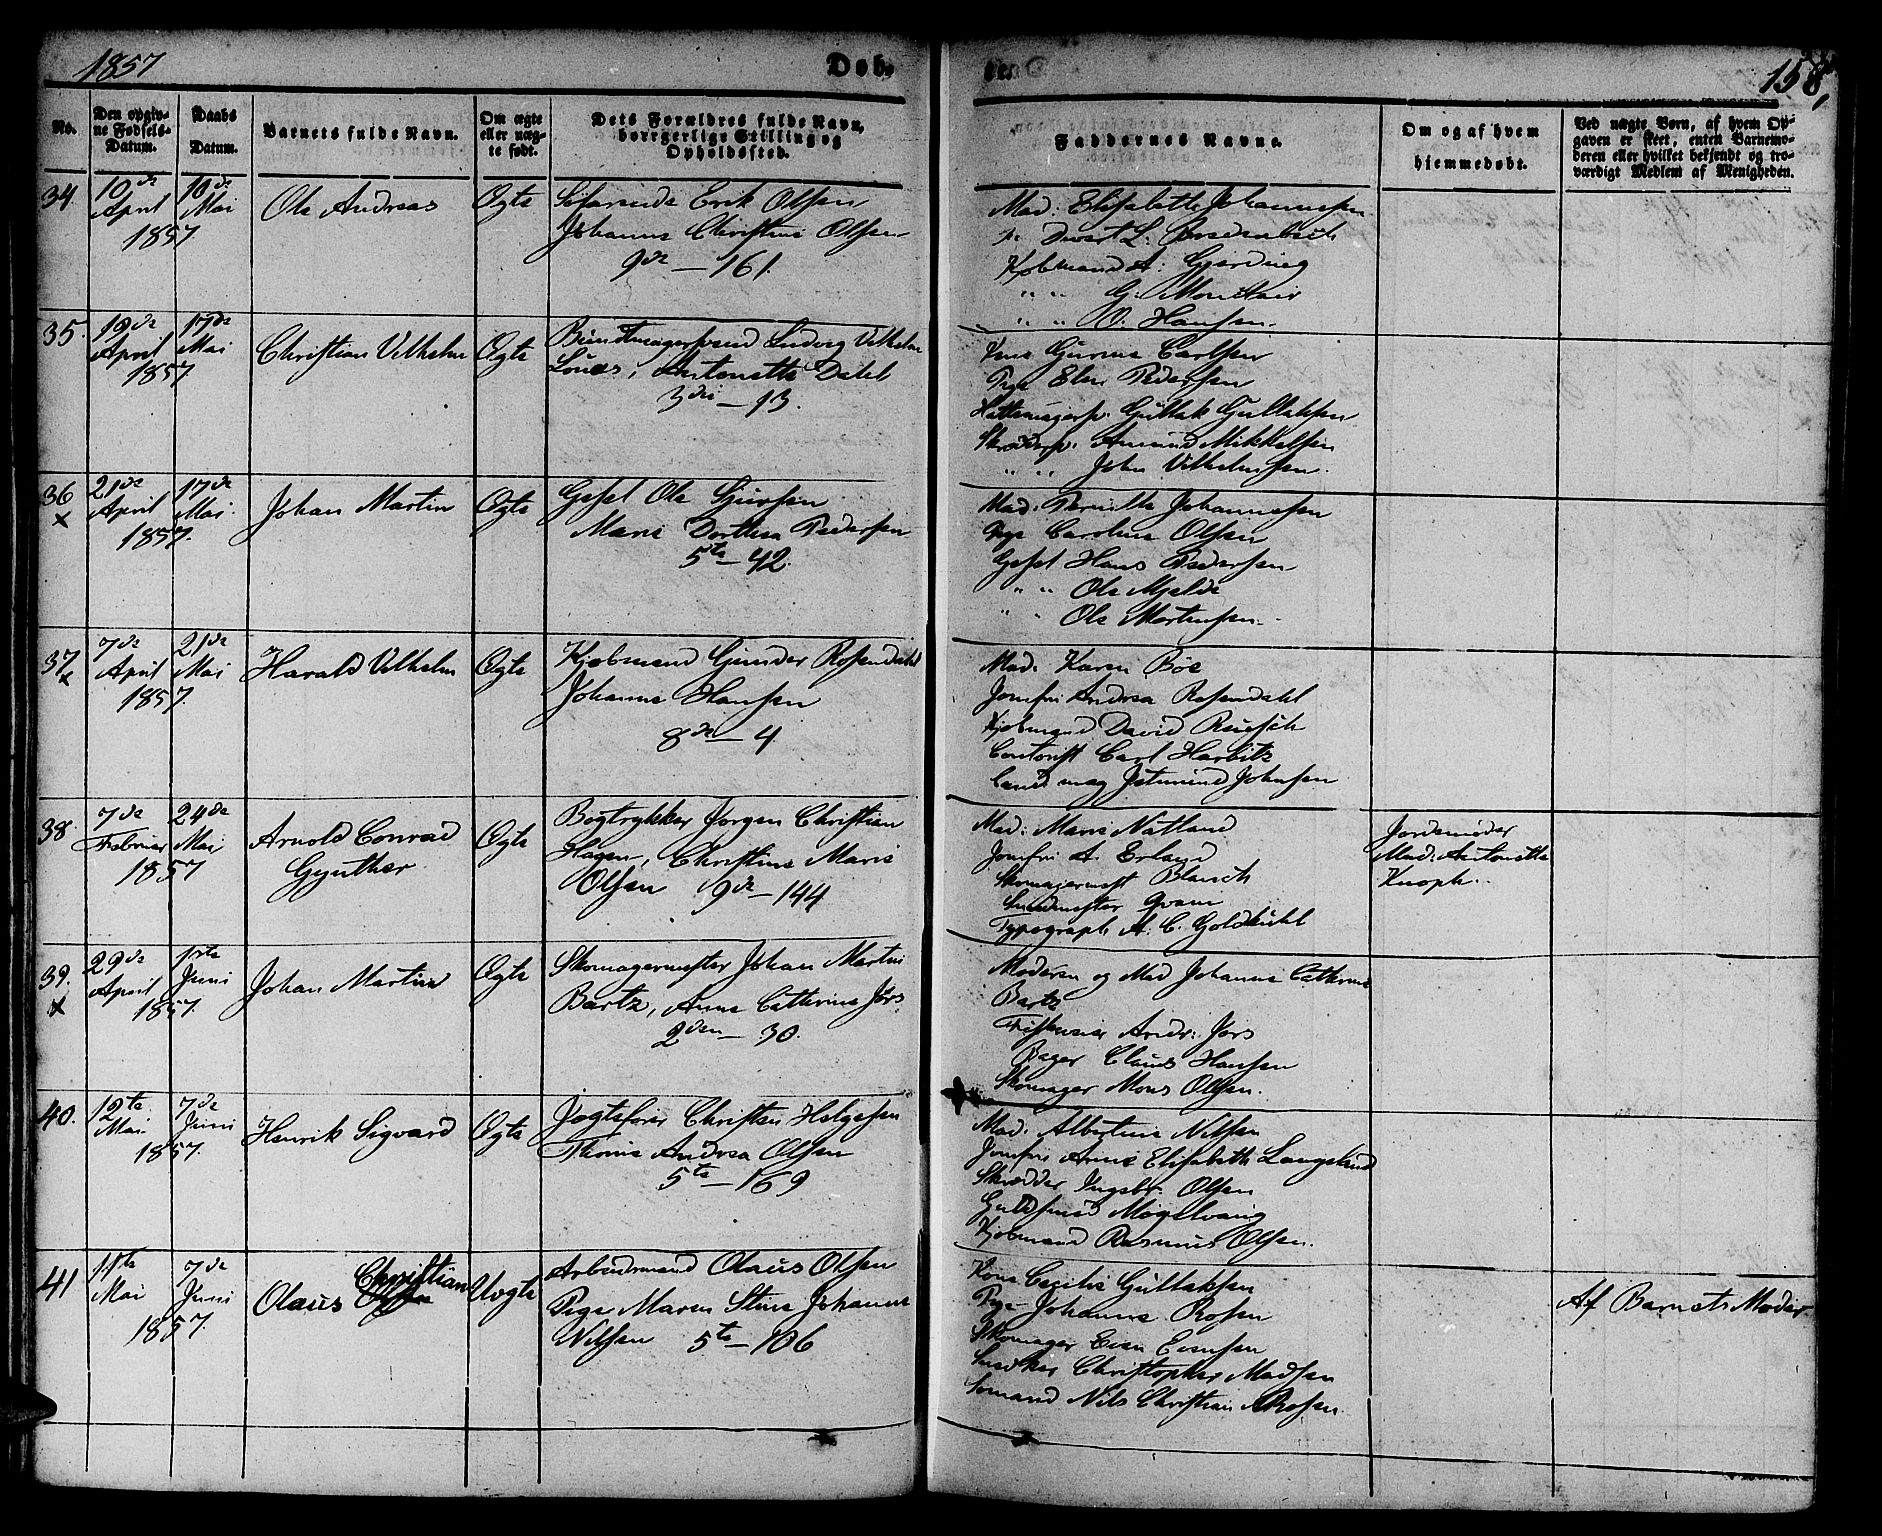 1857
Døb-
te.
158,
No.
Den opgiv-
ne Fødsels-
Datum.
Daabs
Datum.
Barnets fulde Navn.
Om ægte
eller uæg-
te født.
Dets Forældres fulde Navn,
borgerlige Stilling og
Opholdssted.
Faddernes Navne.
Om og af hvem
hjemmedøbt.
Ved uægte Børn, af hvem Op-
gaven er skeet, enten Barnemo-
deren eller hvilket bekjendt og tro-
værdigt Medlem af Menigheden.
34.
10de April 1857
10de Mai
Ole Andreas
Ægte
Erik Olsen
Johanne Christine Olsen
9de — 161.
Mad. Elisabeth Johannesen
Kjøbmand A. Gjerding
" " G. Monclair
" " O. Hansen.
35.
19de April 1857
17de Mai
Christian Vilhelm
Ægte
Buntmagersvend Ludvig Vilhelm
Antonette Dahl
3die — 13.
Kone Gurine Carlsen
Pige Elen Pedersen
Hattemagersv. Gullak Gullaksen
Skrædersv. Amund Mikkelsen
" " John Vilhelmsen.
36
x
21de April 1857.
17de Mai.
Johan Martin
Ægte
Gesel Ole Sjursen
Marie Dorthea Pedersen
5te — 42.
Mad. Pernille Johannesen
Pige Caroline Olsen
Gesel Hans Pedersen
" " Ole Mjelde
" " Ole Mortensen.
37.
x
7de April 1857.
21de Mai
Harald Vilhelm
Ægte
Kjøbmand Gunder Rosendahl
Johanne Hansen
8de — 4.
Mad. Karen Böe
Jomfru Andrea Rosendahl
Kjøbmand David Rusch
Contorist Carl Harbitz
Cand. mag Jetmund Johnsen
38.
7de Februar 1857
24de Mai
Arnold Conrad
Gynther
Ægte
Bogtrykker Jørgen Christian
Hagen, Christine Marie
Olsen 9de — 144
Mad. Marie Natland
Jomfru A. Erland
Skomagermest Blausch
Smedmester Qvam
Typograph A. C. Goldkuhl
Jordemoder
Mad. Antonette
Knoph.
39.
x
29de April 1857.
1ste Juni
Johan Martin
Ægte
Skomagermester Johan Martin
Bartz, Anne Cathrine Jörs.
2den — 30.
Moderen og Mad Johanne Cathrine
Bartz
Andr. Jörs
Bager Claus Hansen
Skomager Mons Olsen.
40.
12te Mai 1857.
7de Juni
Henrik Sigvard
Ægte
Jægtefører Christen Helgesen
Thonie Andrea Olsen
5te — 169
Mad. Albertine Nilsen
Jomfru Anne Elisabeth Langelund
Skrædder Ingebr. Olsen
Guldsmed Møgelvang
Kjøbmand Rasmus Olsen.
41
11te Mai 1857.
7de Juni
Olaus Christian
Uægte
Arbeidsmand Olaus Olsen
Pige Maren Stine Johanne
Nilsen 5te — 106
Kone Cecilie Gullaksen
Pige Johanne Rosen
Skomager Even Evensen
Snedker Christopher Madsen
Sømand Nils Christian Rosen.
Af Barnets Moder.